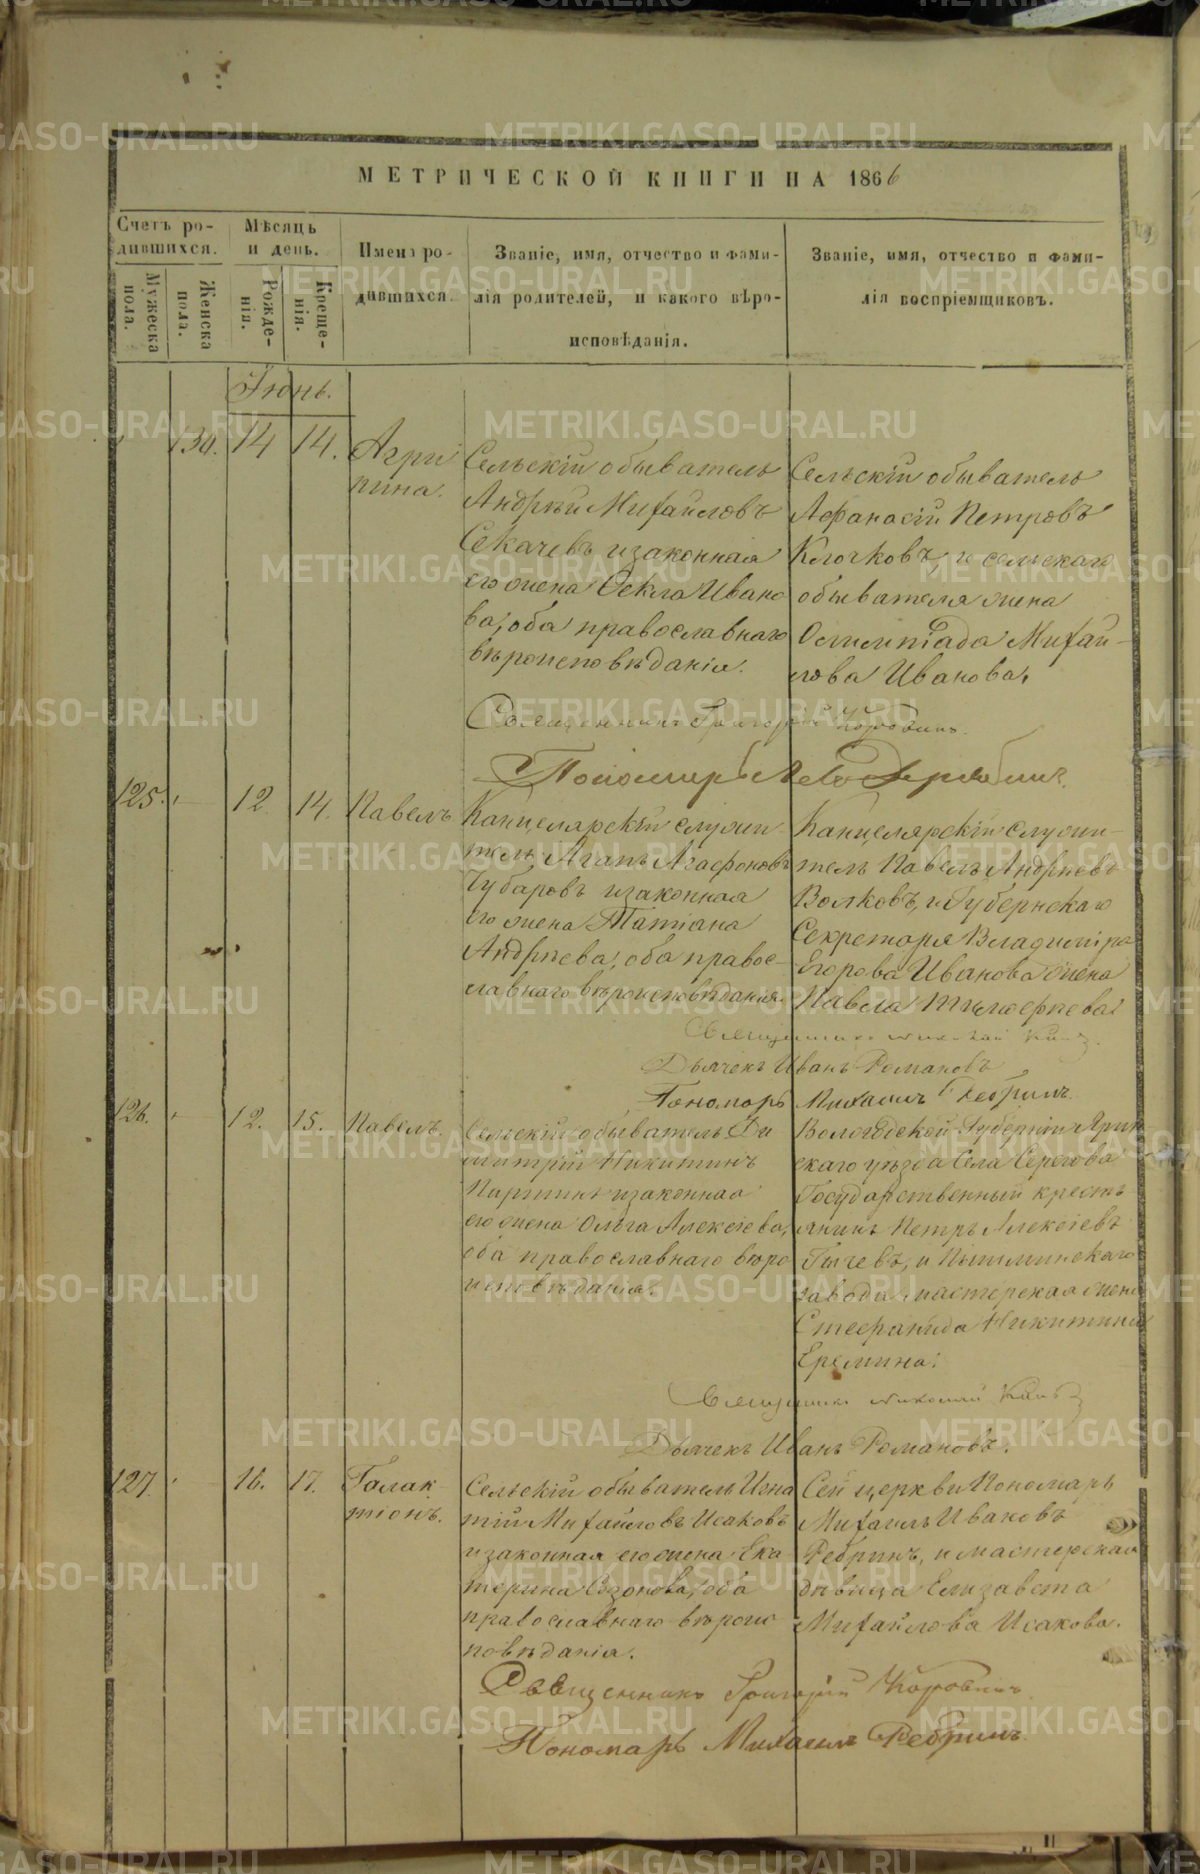 МЕТРИЧЕСКОЙ КНИГИ НА 1866
Счетъ ро-
дившихся.
Мужеска пола.
Женска пола.
Мѣсяцъ
и день.
Рожде-
нія.
Креще-
нія.
Имена ро-
дившихся.
Званіе, имя, отчество и фами-
лія родителей, и какого вѣро-
исповѣданія.
Званіе, имя, отчество и фами-
лія воспріемщиковъ.
Іюнь.
130. 14 14.
Агри
пина.
Сельскій обыватель
Андрѣй Михайловъ
Секачевъ и законная
его жена Ѳекла Ивано
ва, оба православнаго
вѣроисповѣданія.
Сельскій обыватель
Афанасій Петровъ
Клочковъ, и сельскаго
обывателя жена
Олимпіада Михай-
лова Иванова.
Священникъ Григорій Коровинъ.
Пономарь
125. 12 14. Павелъ
Канцелярскій служи
тель Агапъ Агафоновъ
Чубаровъ и законная
его жена Татіана
Андрѣева, оба правос-
лавнаго вѣроисповѣданія.
Канцелярскій служи-
тель Павелъ Андрѣевъ
Волковъ, и Губернскаго
Секретаря Владиміра
Егорова Иванова жена
Павла Тимоѳеева.
Священникъ Николай
Дьячекъ Иванъ Романовъ
Пономарь Михаилъ Ребринъ.
126. 12. 15. Павелъ.
Сельскій обыватель Ди
митрій Никитинъ
Паршинъ и законная
его жена Ольга Алексіева,
оба православнаго вѣро
исповѣданія.
Вологодской Губерніи Ярен
скаго уѣзда Села Серегова
Государственный кресть
янинъ Петръ Алексіевъ
и Пышминскаго
завода мастерская жена
Стефанида Никитина
Еремина.
Священникъ Николай
Дьячекъ Иванъ Романовъ.
127. 16. 17.
Галак
тіонъ.
Сельскій обыватель Игна
тій Михайловъ Исаковъ
и законная его жена Ека
терина Созонова, оба
православнаго вѣроис
повѣданія.
Сей церкви Пономарь
Михаилъ Ивановъ
Ребринъ, и мастерская
дѣвица Елизавета
Михайлова Исакова.
Священникъ Григорій Коровинъ
Пономарь Михаилъ Ребринъ.
METRIKI.GASO-URAL.RU